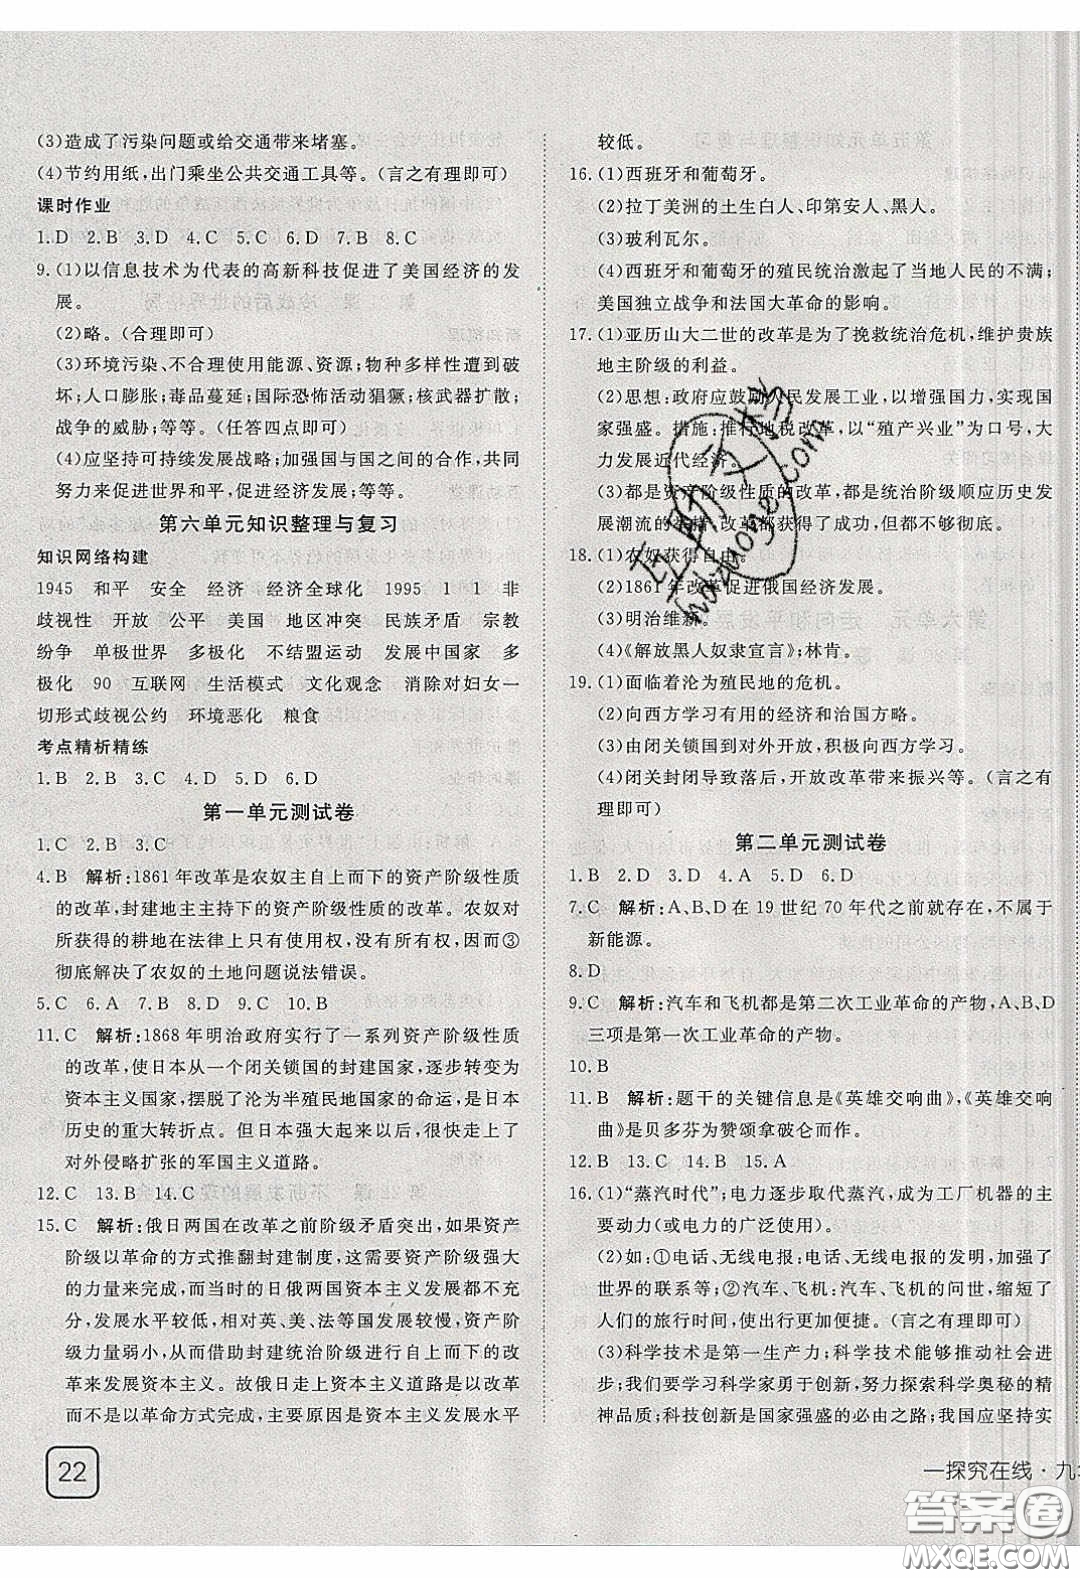 (3)造成了污染问题或给交通带来堵塞。
(4)节约用纸，出门乘坐公共交通工具等。(言之有理即可)
课时作业
1.D 2.B 3.D 4.C 5.C 6.D 7.B 8.C
9.(1)以信息技术为代表的高新科技促进了美国经济的发
展。
(2)略。(合理即可)
(3)环境污染、不合理使用能源、资源；物种多样性遭到破
坏；人口膨胀；毒品蔓延；国际恐怖活动猖獗；核武器扩散；
战争的威胁；等等。(任答四点即可)
(4)应坚持可持续发展战略；加强国与国之间的合作，共同
努力来促进世界和平、促进经济发展；等等。
第六单元知识整理与复习
知识网络构建
1945 和平 安全 经济 经济全球化 1995 1 1 非
歧视性 开放 公平 美国 地区冲突 民族矛盾 宗教
纷争 单极世界 多极化 不结盟运动 发展中国家 多
极化 90 互联网 生活模式 文化观念 消除对妇女一
切形式歧视公约 环境恶化 粮食
考点精析精练
1.B 2.B 3.C 4.D 5.D 6.D
第一单元测试卷
1.C 2.B 3.C
4.B 解析：1861年改革是农奴主自上而下的资产阶级性质
的改革，封建地主主持下的资产阶级性质的改革。农奴对
所获得的耕地在法律上只有使用权，没有所有权，因而③
彻底解决了农奴的土地问题说法错误。
5.C 6.A 7.B 8.D 9.C 10.B
11.C 解析：1868年明治政府实行了一系列资产阶级性质
的改革，使日本从一个闭关锁国的封建国家，逐步转变为
资本主义国家，摆脱了沦为半殖民地国家的命运，是日本
历史的重大转折点。但日本强大起来以后，很快走上了
对外侵略扩张的军国主义道路。
12.C 13.C 14.B
15.C 解析：俄日两国在改革之前阶级矛盾突出，如果资产
阶级以革命的方式推翻封建制度，这需要资产阶级强大
的力量来完成，而当时日俄两国资本主义发展都不充
分，发展水平较低，相对英、美、法等国发展较慢，资产阶
级力量弱小，从而借助封建统治阶级的力量用自上而下的改
革来发展资本主义。故俄日走上资本主义道路是以改革
而不是以革命方式完成，主要原因是资本主义发展水平
较低。
16.(1)西班牙和葡萄牙。
(2)拉丁美洲的土生白人、印第安人、黑人。
(3)玻利瓦尔。
(4)西班牙和葡萄牙的殖民统治激起了当地人民的不满；
美国独立战争和法国大革命的影响。
17.(1)亚历山大二世的改革是为了挽救统治危机，维护贵族
地主阶级的利益。
(2)思想：政府应鼓励人民发展工业，以增强国力，实现国
家强盛。措施：推行地税改革，以“殖产兴业”为口号，大
力发展近代经济。
(3)都是资产阶级性质的改革，都是统治阶级顺应历史发
展潮流的举措，改革都获得了成功，但都不彻底。
18.(1)农奴获得自由。
(2)1861年改革促进俄国经济发展。
(3)明治维新。
(4)《解放黑人奴隶宣言》；林肯。
19.(1)面临着沦为殖民地的危机。
(2)向西方学习有用的经济和治国方略。
(3)由闭关锁国到对外开放，积极向西方学习。
(4)闭关封闭导致落后，开放改革带来振兴等。(言之有
理即可)
第二单元测试卷
1.B 2.D 3.D 4.A 5.D 6.D
7.C 解析：A、B、D在19世纪70年代之前就存在，不属于
新能源。
8.D
9.C 解析：汽车和飞机都是第二次工业革命的产物，A、B、D
三项是第一次工业革命的产物。
10.B
11.B 解析：题干的关键信息是《英雄交响曲》，《英雄交响
曲》是贝多芬为赞颂拿破仑而作。
12.B 13.C 14.B 15.A
16.(1)“蒸汽时代”；电力逐步取代蒸汽，成为工厂机器的主
要动力(或电力的广泛使用)
(2)如：①电话、无线电报；电话、无线电报的发明，加强了
世界的联系等；②汽车、飞机：汽车、飞机的问世，缩短了
人们的旅行时间，使出行更加便捷。(言之有理即可)
(3)科学技术是第一生产力；科学技术能够推动社会进
步；我们要学习科学家勇于创新，努力探索科学奥秘的精
神品质；科技创新是国家强盛的必由之路；我国应坚持实
22
一探究在线·九
互助文档
hdzuoye.com
答案圈
MXQE.COM